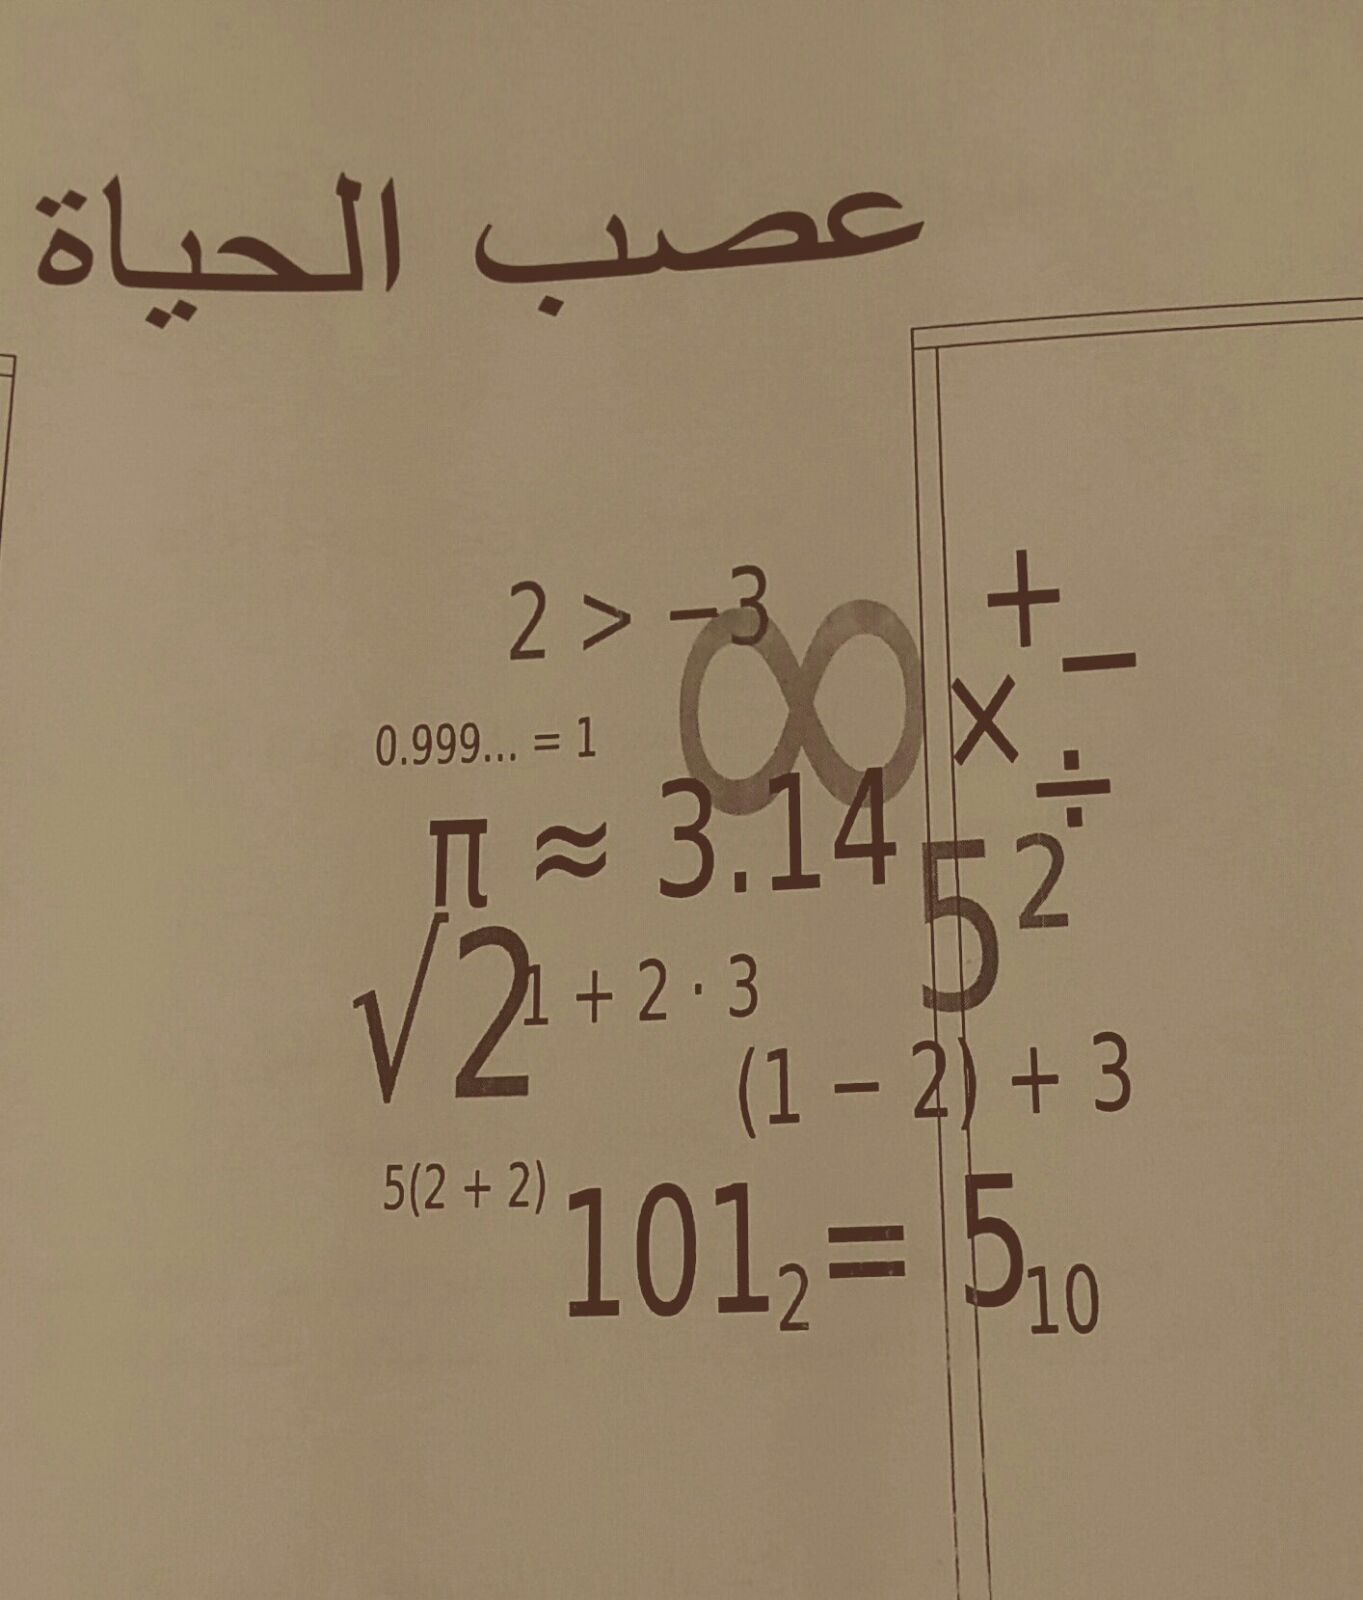 عصب الحياة
2 > −3
∞
+
−
0.999... = 1
×
÷
π ≈ 3.14
5²
√2
1 + 2 · 3
(1 − 2) + 3
5(2 + 2)
101₂ = 5₁₀